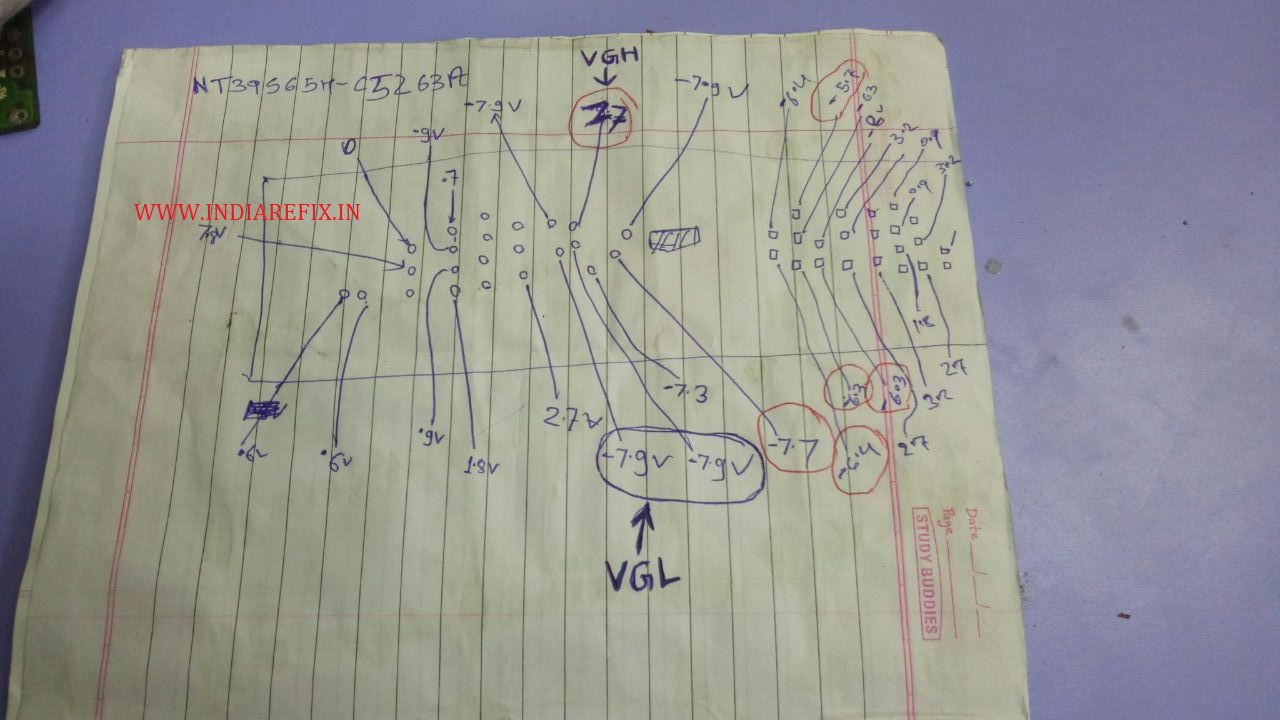 VGH
NT39565H-C5263A
-7.9V
-7.9V
-5.7
0
.9V
.7
3.2
0.9
3.2
WWW.INDIAREFIX.IN
0.9
-7.3
2.7
2.7V
3.2
2.7
-7.9V
-7.9V
-7.7
.6V
.6V
.9V
1.8V
VGL
Date
Page
STUDY BUDDIES